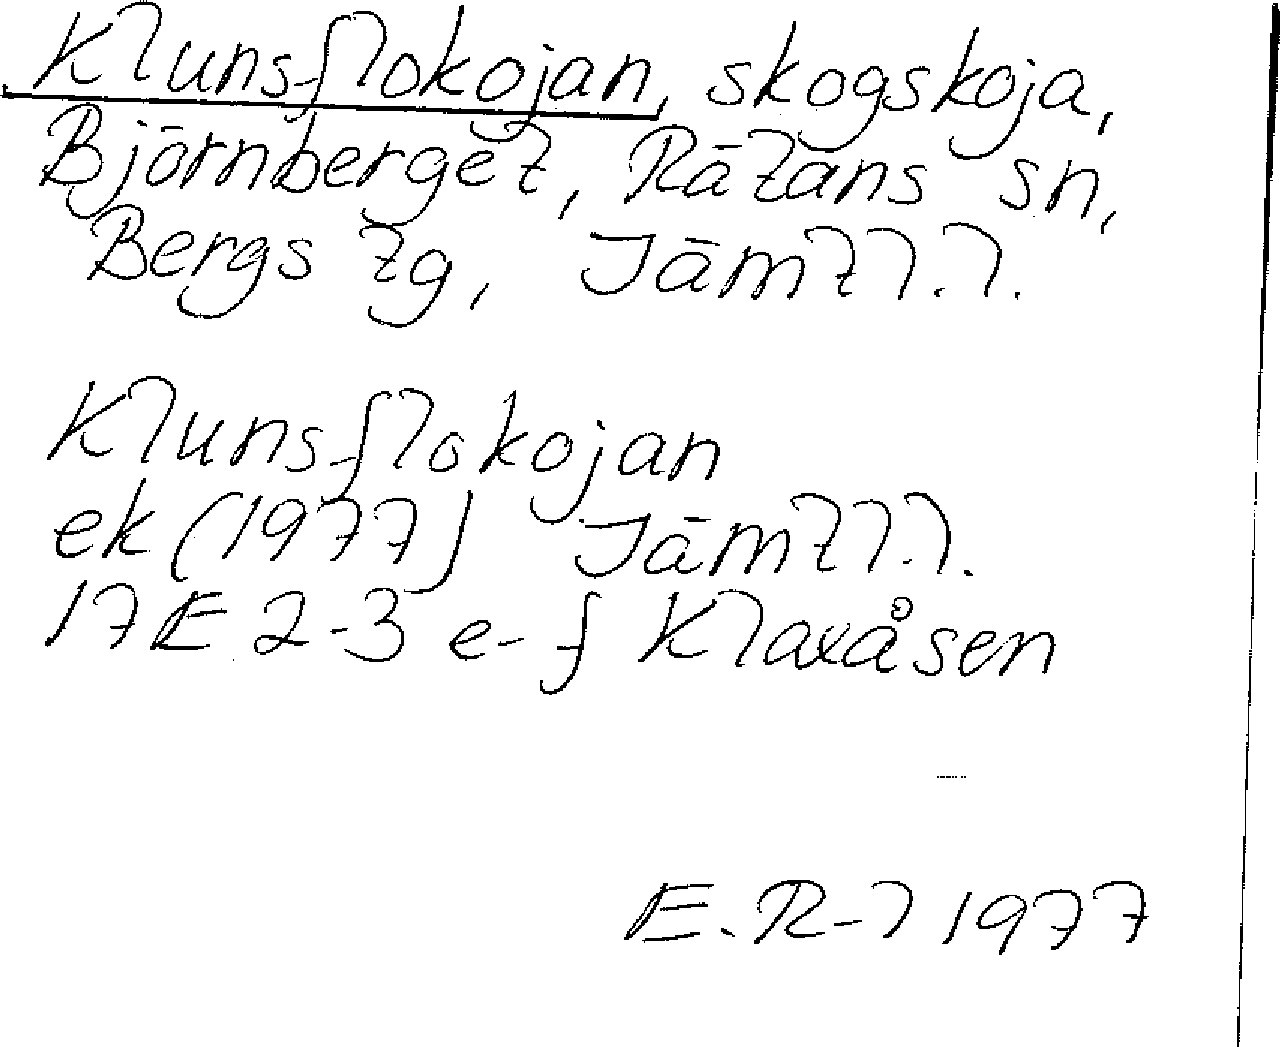 Klunsflokojan, skogskoja,
Björnberget, Rätans sn,
Bergs tg, Jämtl.l.
Klunsflokojan
ek (1977) Jämtl.l.
17E 2-3 e-f Klaxåsen
E. R-l 1977